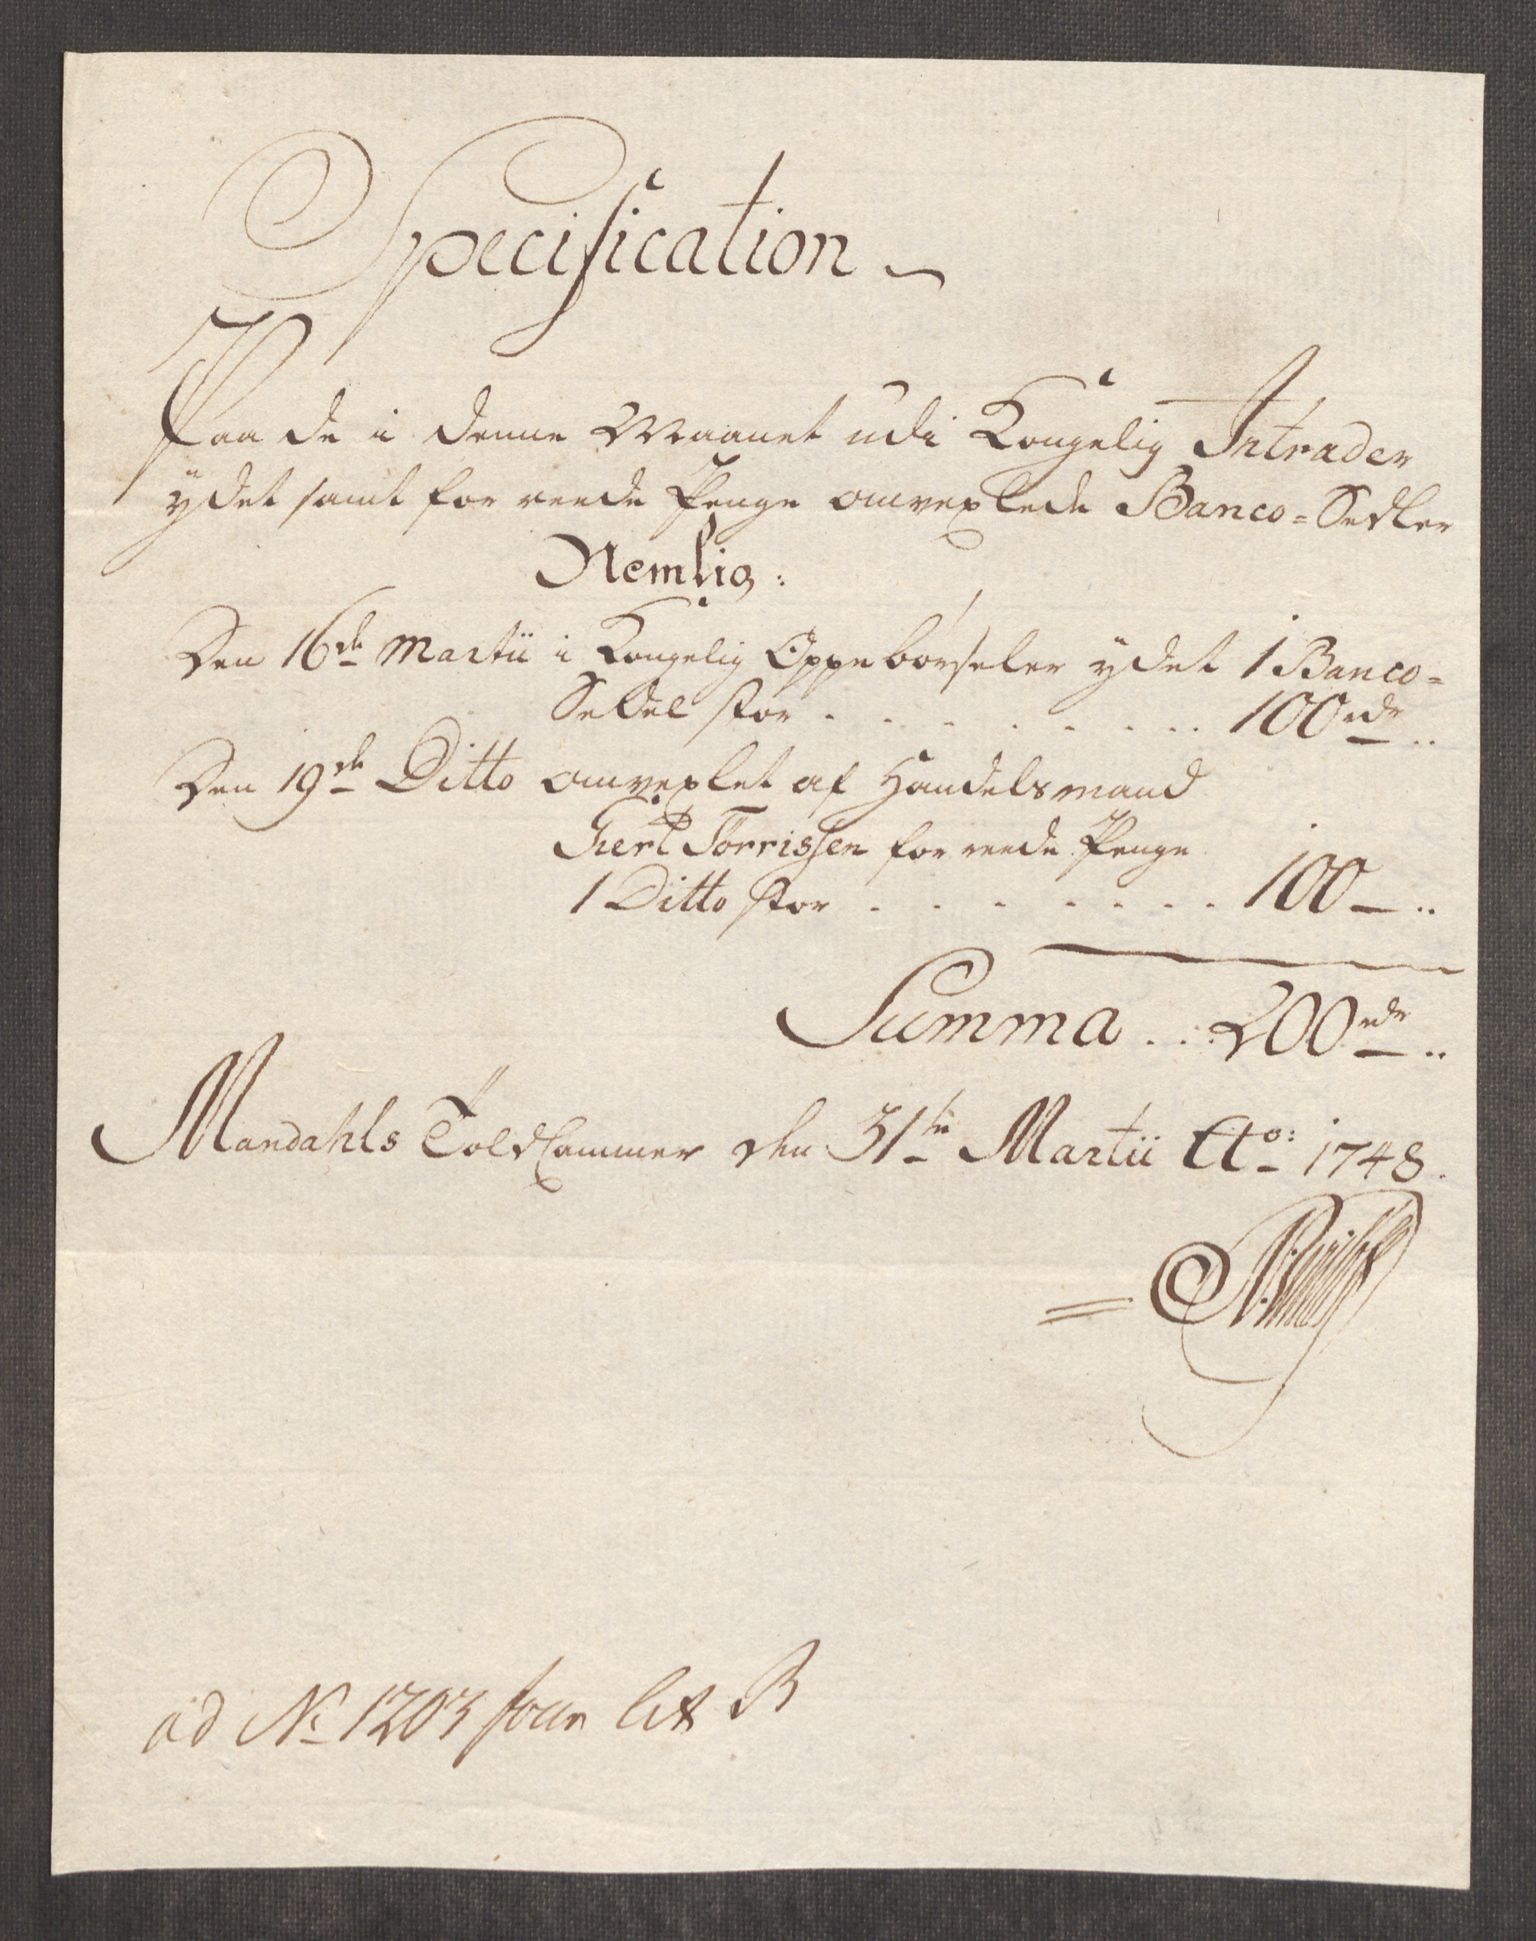 Specification
Paa de i denne Maanet udi Kongelig Intrader
ydet samt for reede Penge omvexlede Banco=Sedler
Nemlig:
Den 16de Martii i Kongelig Oppebørseler ydet 1 Banco=
Sedel stor . . . . . . . . 100 rdr ..
Den 19de Ditto omvexlet af Handelsmand
Giert Torrissen for reede Penge
1 Ditto stor . . . . . . . . 100 – ..
Summa . . 200 rdr ..
Mandahls ToldCammer den 31te Martii Ao: 1748.
ad No 1203 Jour lit B